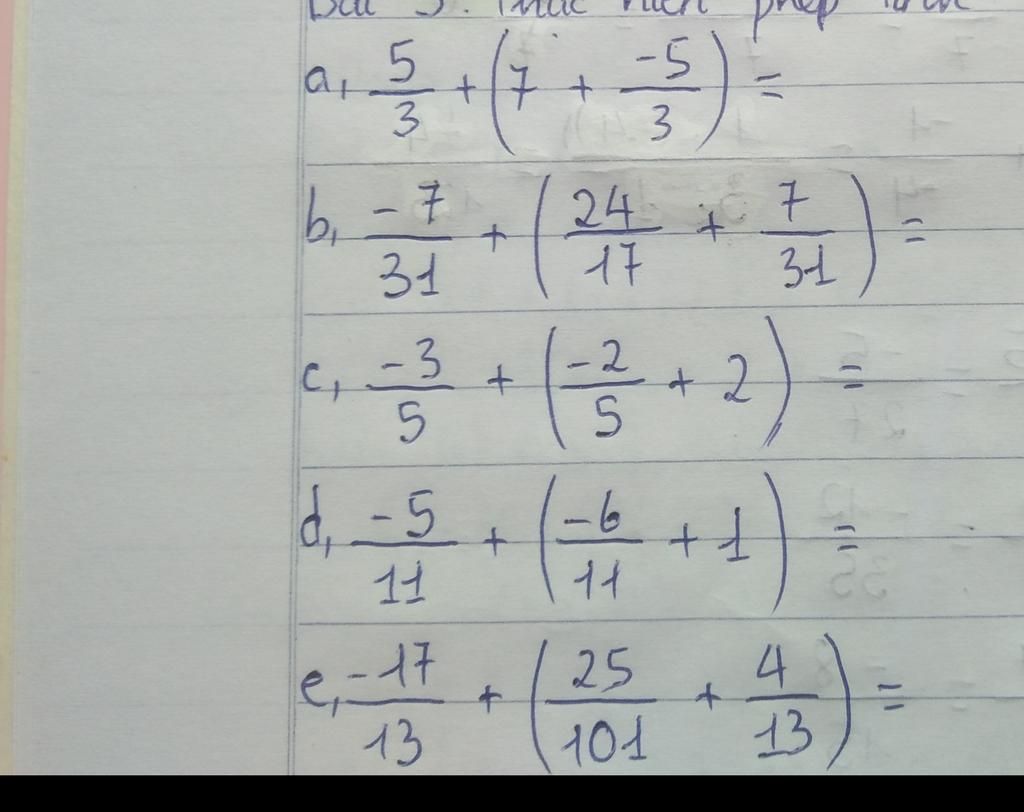 Bài 3: Thực hiện phép tính
a, 5/3 + (7 + -5/3) =
b, -7/31 + (24/17 + 7/31) =
c, -3/5 + (-2/5 + 2) =
d, -5/11 + (-6/11 + 1) =
e, -17/13 + (25/101 + 4/13) =